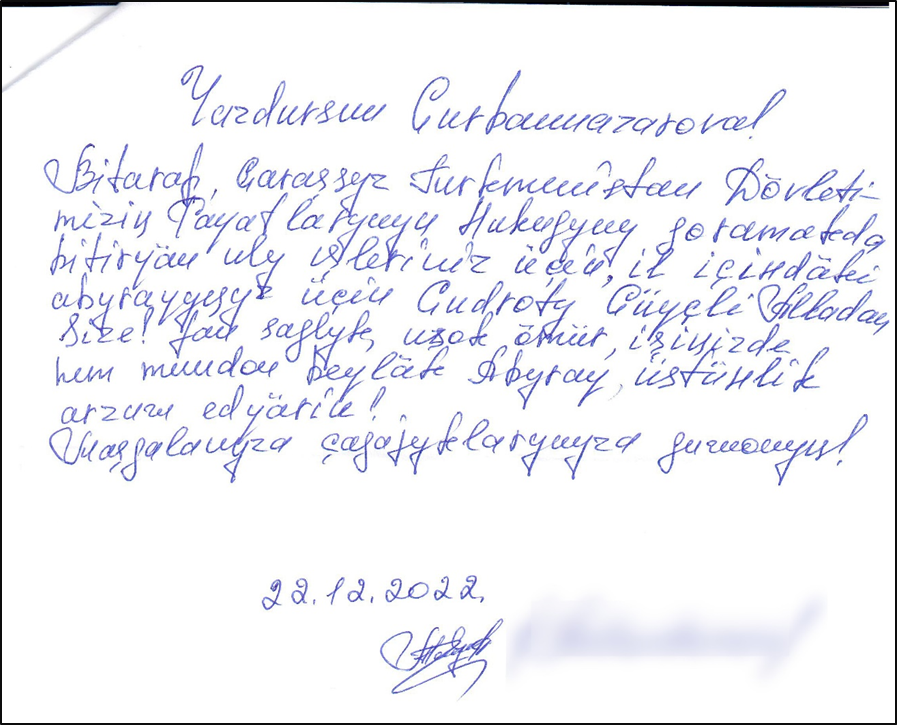 Yazdursun Gurbannazarova!
Bitarap, Garaşsyz Türkmenistan Döwleti-
miziň Raýatlarynyň Hukugyny goramakda
bitirýän uly işleriňiz üçin, il içindäki
abyraýyňyz üçin Gudraty Güýçli Alladan
Size! Jan saglyk, uzak ömür, işiňizde
hem mundan beýläk Abyraý, üstünlik
arzuw edýärin!
Maşgalaňyza çagajyklaryňyza guwanyň!
22.12.2022.